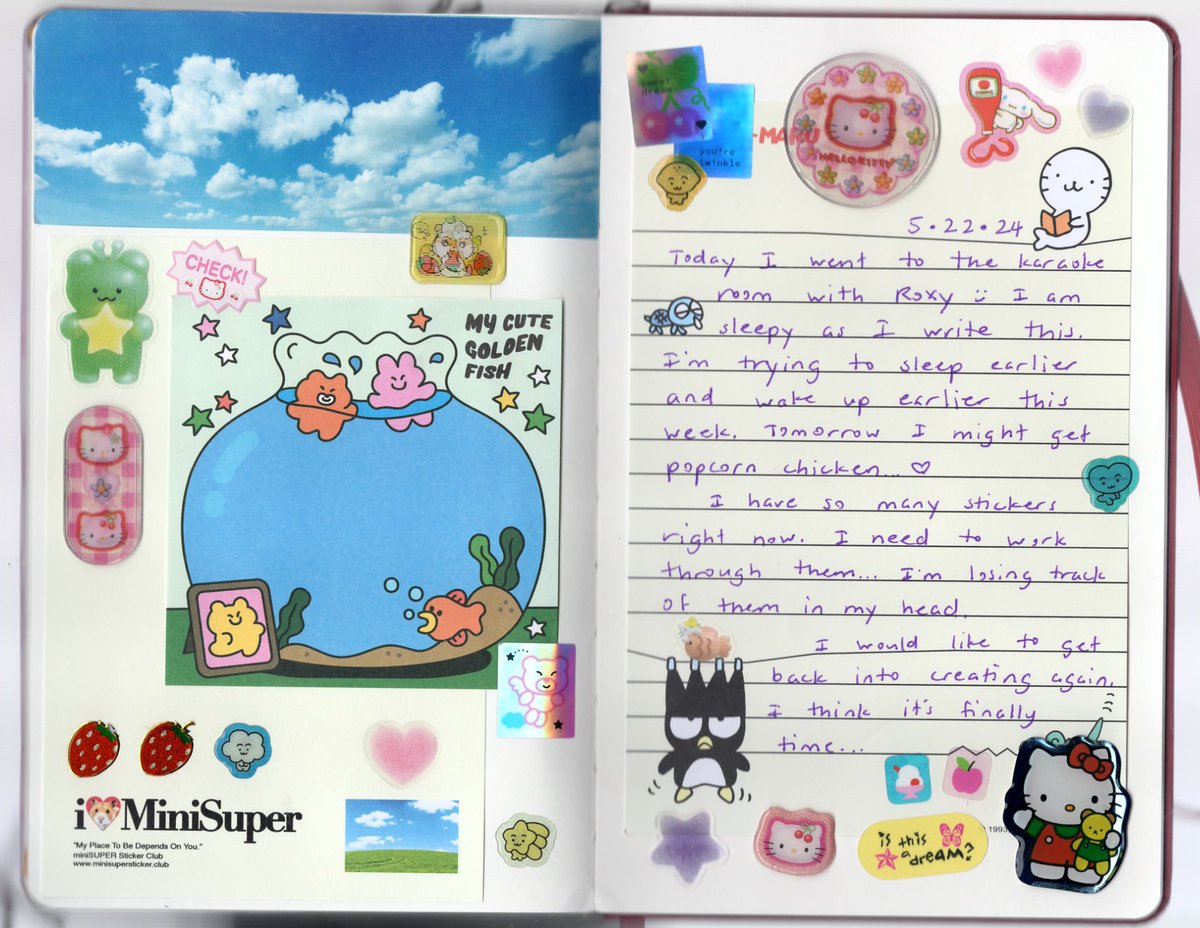 CHECK!
MY CUTE
GOLDEN
FISH
i MiniSuper
"My Place To Be Depends On You."
miniSUPER Sticker Club
www.minisupersticker.club
sweet
dream
you're
twinkle
-MARU
HELLO KITTY
5·22·24
Today I went to the karaoke
room with Roxy :) I am
sleepy as I write this.
I'm trying to sleep earlier
and wake up earlier this
week. Tomorrow I might get
popcorn chicken... ♡
I have so many stickers
right now. I need to work
through them... I'm losing track
of them in my head.
I would like to get
back into creating again.
I think it's finally
time...
is this
a dream?
1993